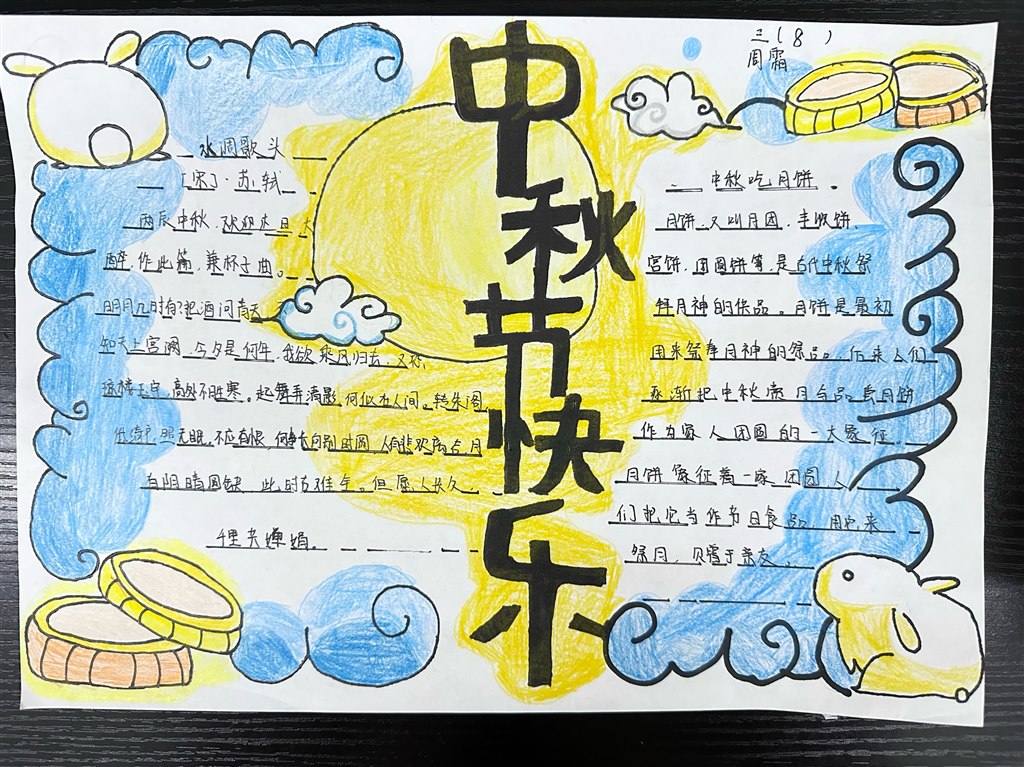 三(8)
周霜
中秋节快乐
水调歌头
[宋]·苏轼
丙辰中秋,欢饮达旦,大
醉,作此篇,兼怀子由。
明月几时有?把酒问青天。不
知天上宫阙,今夕是何年,我欲乘风归去,又恐
琼楼玉宇,高处不胜寒。起舞弄清影,何似在人间。转朱阁
低绮户,照无眠。不应有恨,何事长向别时圆,人有悲欢离合,月
有阴晴圆缺,此时古难全。但愿人长久,
千里共婵娟。
中秋吃月饼。
月饼,又叫月团、丰收饼、
宫饼、团圆饼等,是古代中秋祭
拜月神的供品。月饼是最初
用来祭奉月神的祭品。后来人们
逐渐把中秋赏月与品尝月饼
作为家人团圆的一大象征。
月饼象征着一家团圆,人
们把它当作节日食品,用它来
祭月、赠于亲友。